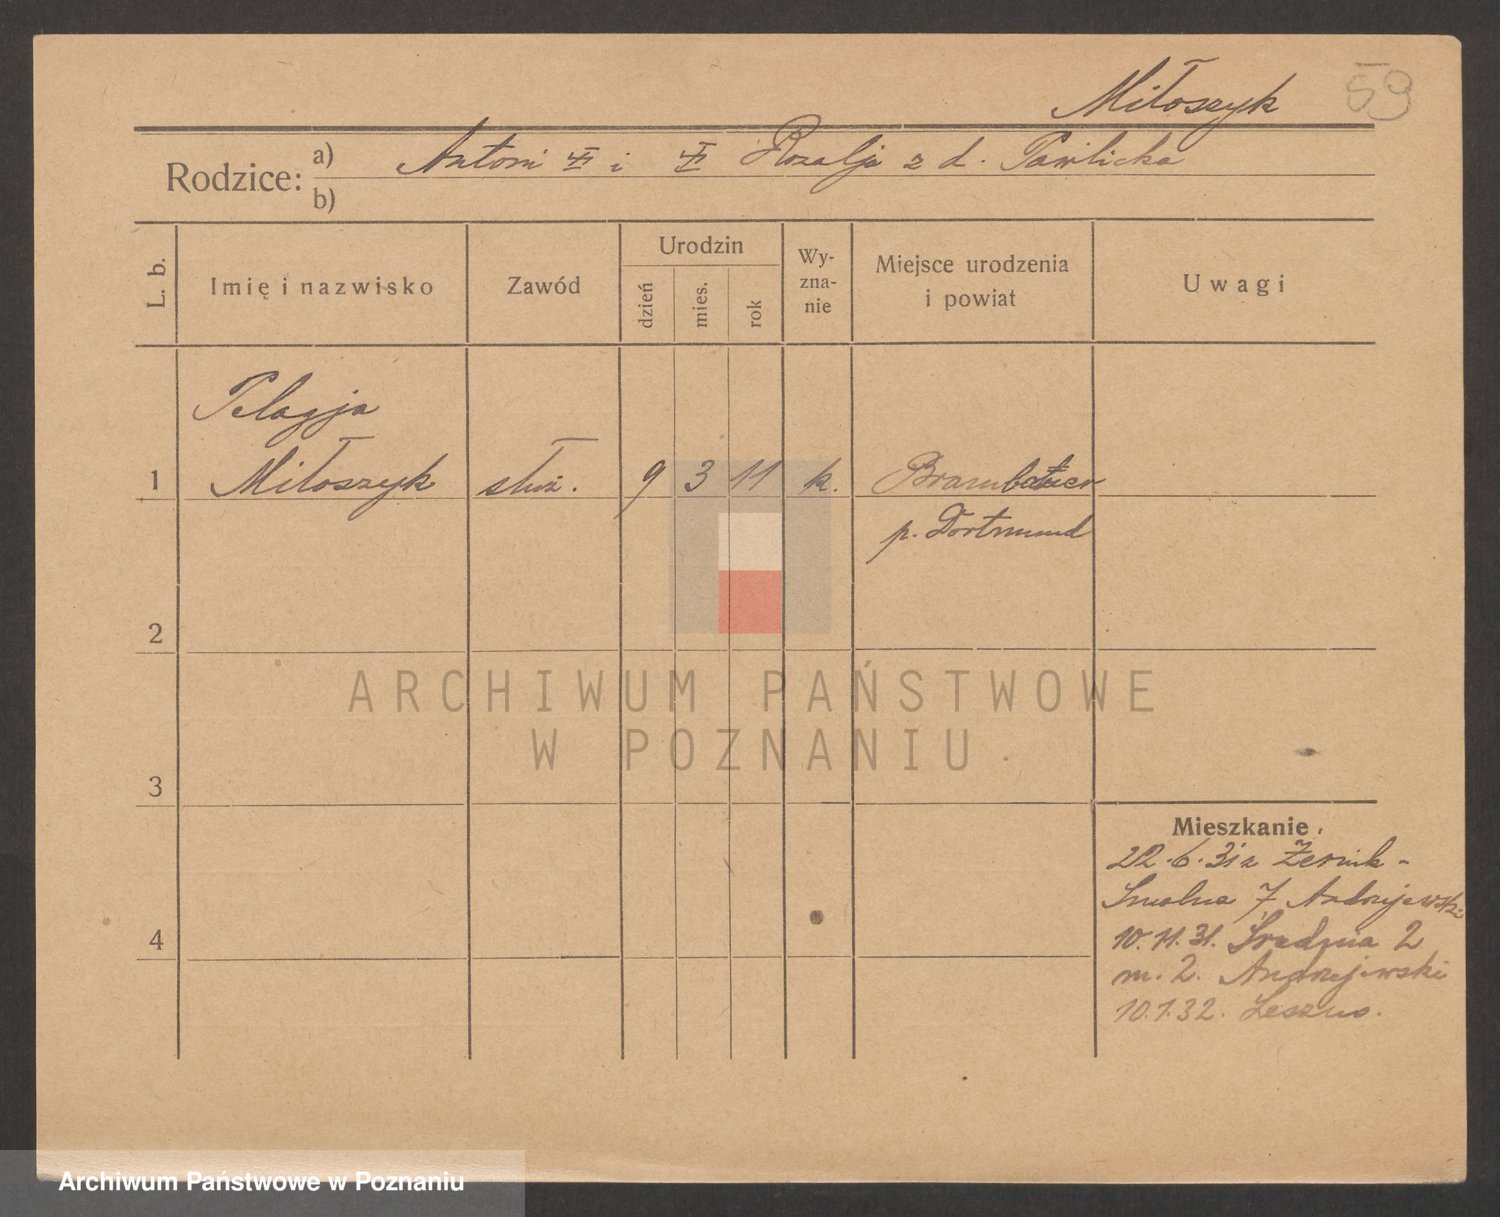 Miłoszyk
59
Rodzice: a) Antoni i Rozalja z d. Pawlicka
b)
L. b.
Imię i nazwisko
Zawód
Urodzin
dzień
mies.
rok
Wy-
zna-
nie
Miejsce urodzenia
i powiat
Uwagi
Pelagja
1 Miłoszyk służ. 9 3 11 k.
p. Dortmund
2
ARCHIWUM PAŃSTWOWE
W POZNANIU
3
Mieszkanie
22.6.31 z Żernik-
Smolna 7 Andrzejewski
4
10.11.31. Średnia 2
m. 2. Andrzejewski
10.1.32. Leszno.
Archiwum Państwowe w Poznaniu